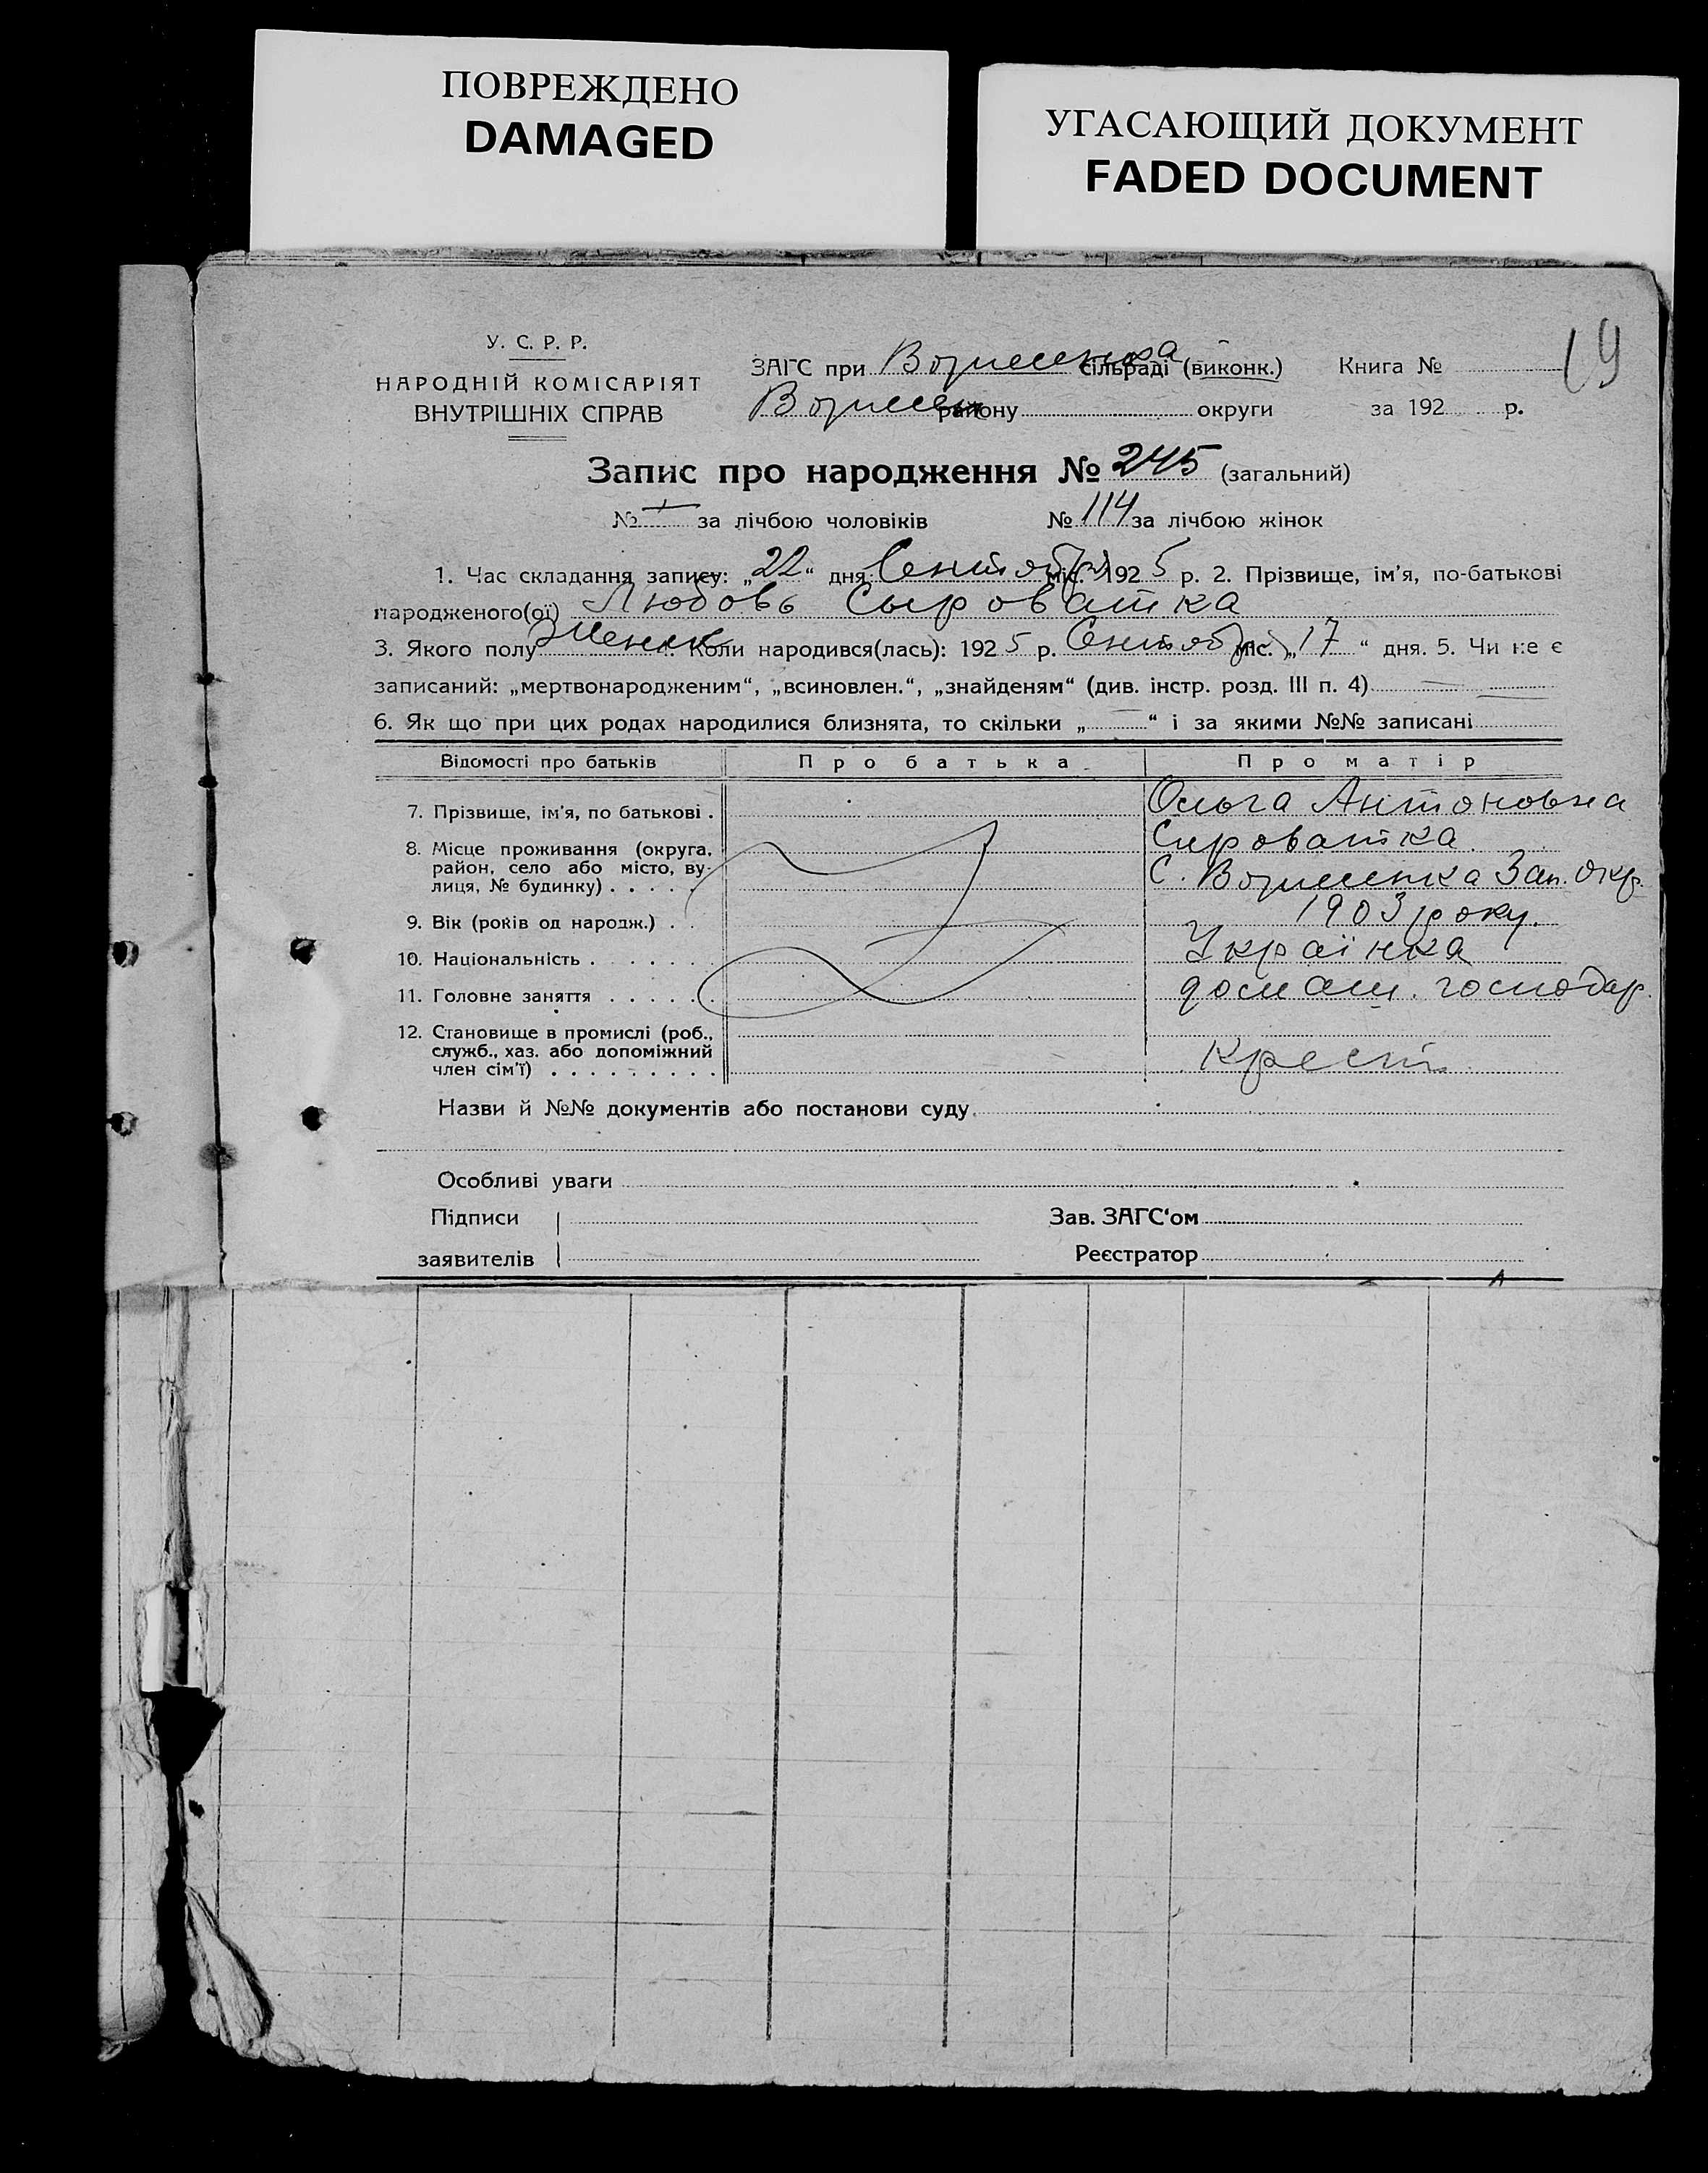 ПОВРЕЖДЕНО
DAMAGED
УГАСАЮЩИЙ ДОКУМЕНТ
FADED DOCUMENT
19
У. С. Р. Р.
НАРОДНІЙ КОМІСАРІЯТ
ВНУТРІШНІХ СПРАВ
ЗАГС при Вознесенка сільраді (виконк.) Книга №
Вознесен району округи за 192 р.
Запис про народження № 245 (загальний)
№ — за лічбою чоловіків № 114 за лічбою жінок
1. Час складання запису: „22“ дня Сентября міс. 1925 р. 2. Прізвище, ім’я, по-батькові
народженого(ої) Любовь Сыроватка
3. Якого полу Женск. Коли народився(лась): 1925 р. Сентября міс. „17“ дня. 5. Чи не є
записаний: „мертвонародженим“, „всиновлен.“, „знайденям“ (див. інстр. розд. III п. 4) —
6. Як що при цих родах народилися близнята, то скільки „—“ і за якими №№ записані
Відомості про батьків Про батька Про матір
7. Прізвище, ім’я, по батькові . Ольга Антоновна
Сироватка
8. Місце проживання (округа,
район, село або місто, ву-
лиця, № будинку) . . . . . С. Вознесенка Зап. окр.
9. Вік (років од народж.) . . 1903 року.
10. Національність . . . . . . . Українка
11. Головне заняття . . . . . . домаш. господар.
12. Становище в промислі (роб.,
служб., хаз. або допоміжний
член сім’ї) . . . . . . . . . Крест
Назви й №№ документів або постанови суду
Особливі уваги
Підписи Зав. ЗАГС‘ом
заявителів Реєстратор